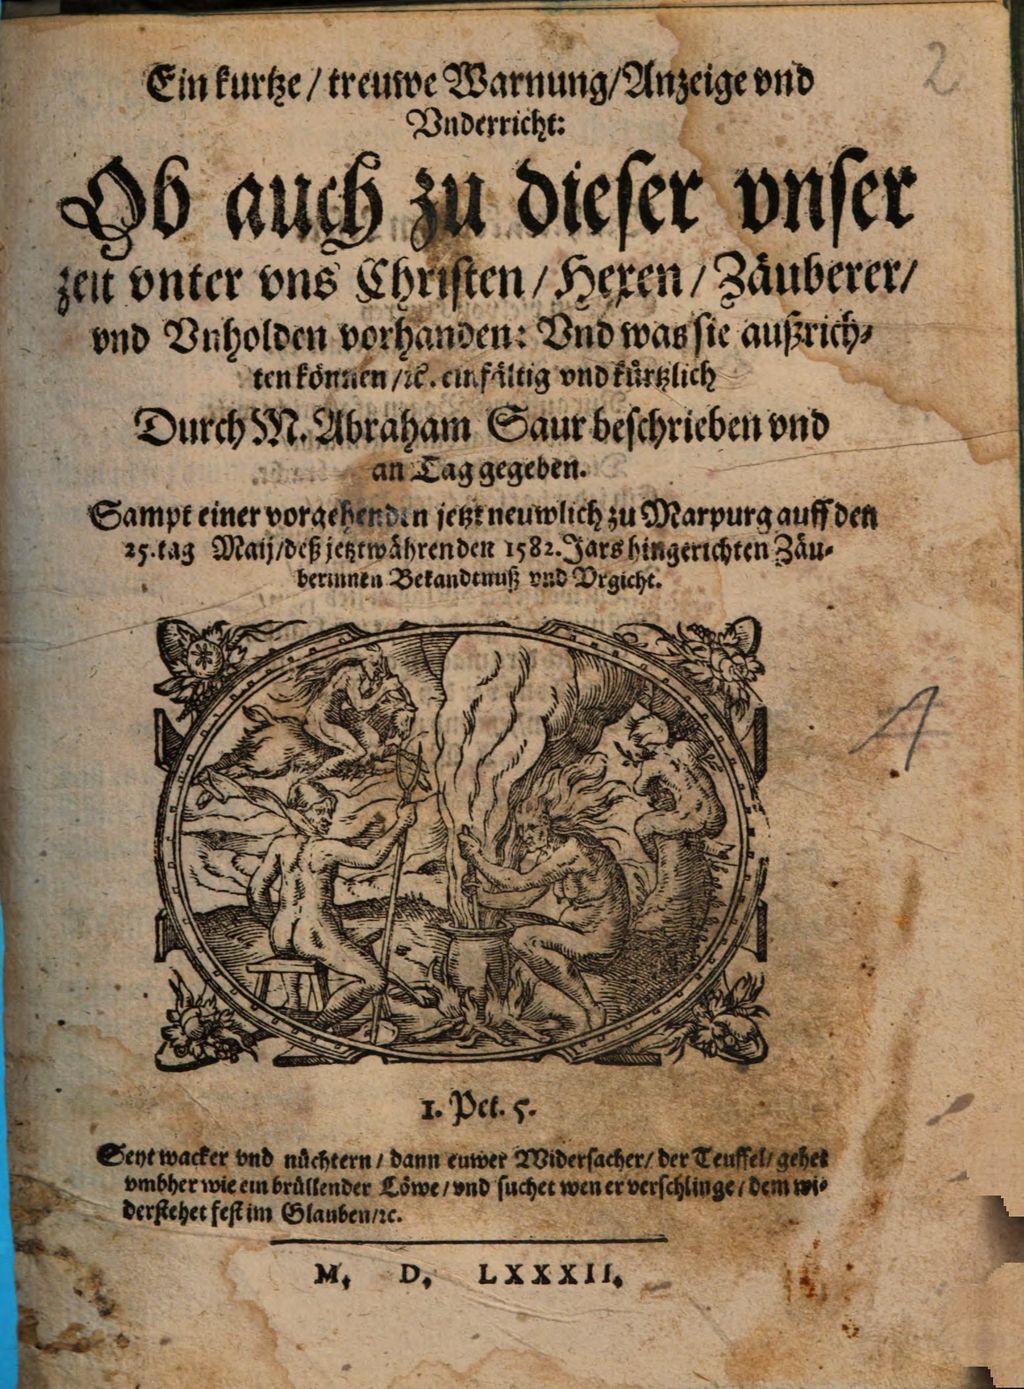 2
Ein kurtze / treuwe Warnung / Anzeige vnd
Vnderricht:
Ob auch zu dieser vnser
zeit vnter vns Christen / Hexen / Zäuberer /
vnd Vnholden vorhanden: Vnd was sie außrich-
ten können / ꝛc. einfältig vnd kürtzlich
Durch M. Abraham Saur beschrieben vnd
an Tag gegeben.
Sampt einer vorgehenden jetzt neuwlich zu Marpurg auff den
25. tag Maij / deß jetztwährenden 1582. Jars hingerichten Zäu-
berinnen Bekandtnuß vnd Vrgicht.
A
1. Pet. 5.
Seyt wacker vnd nüchtern / dann euwer Widersacher / der Teuffel / gehet
vmbher wie ein brüllender Löwe / vnd suchet wen er verschlinge / dem wi-
derstehet fest im Glauben / ꝛc.
M. D. LXXXII.